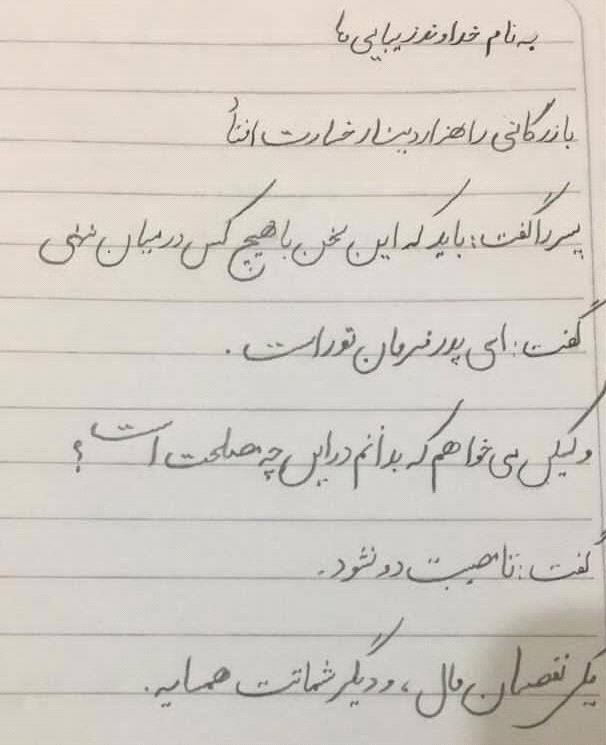 به نام خداوند زیبایی ها
بازرگانی را هزار دینار خسارت افتاد
پسر را گفت: باید که این سخن با هیچ کس در میان ننهی
گفت: ای پدر فرمان تو راست.
ولیکن می خواهم که بدانم در این چه مصلحت است؟
گفت: تا مصیبت دو نشود.
یکی نقصان مال، و دیگر شماتت همسایه.